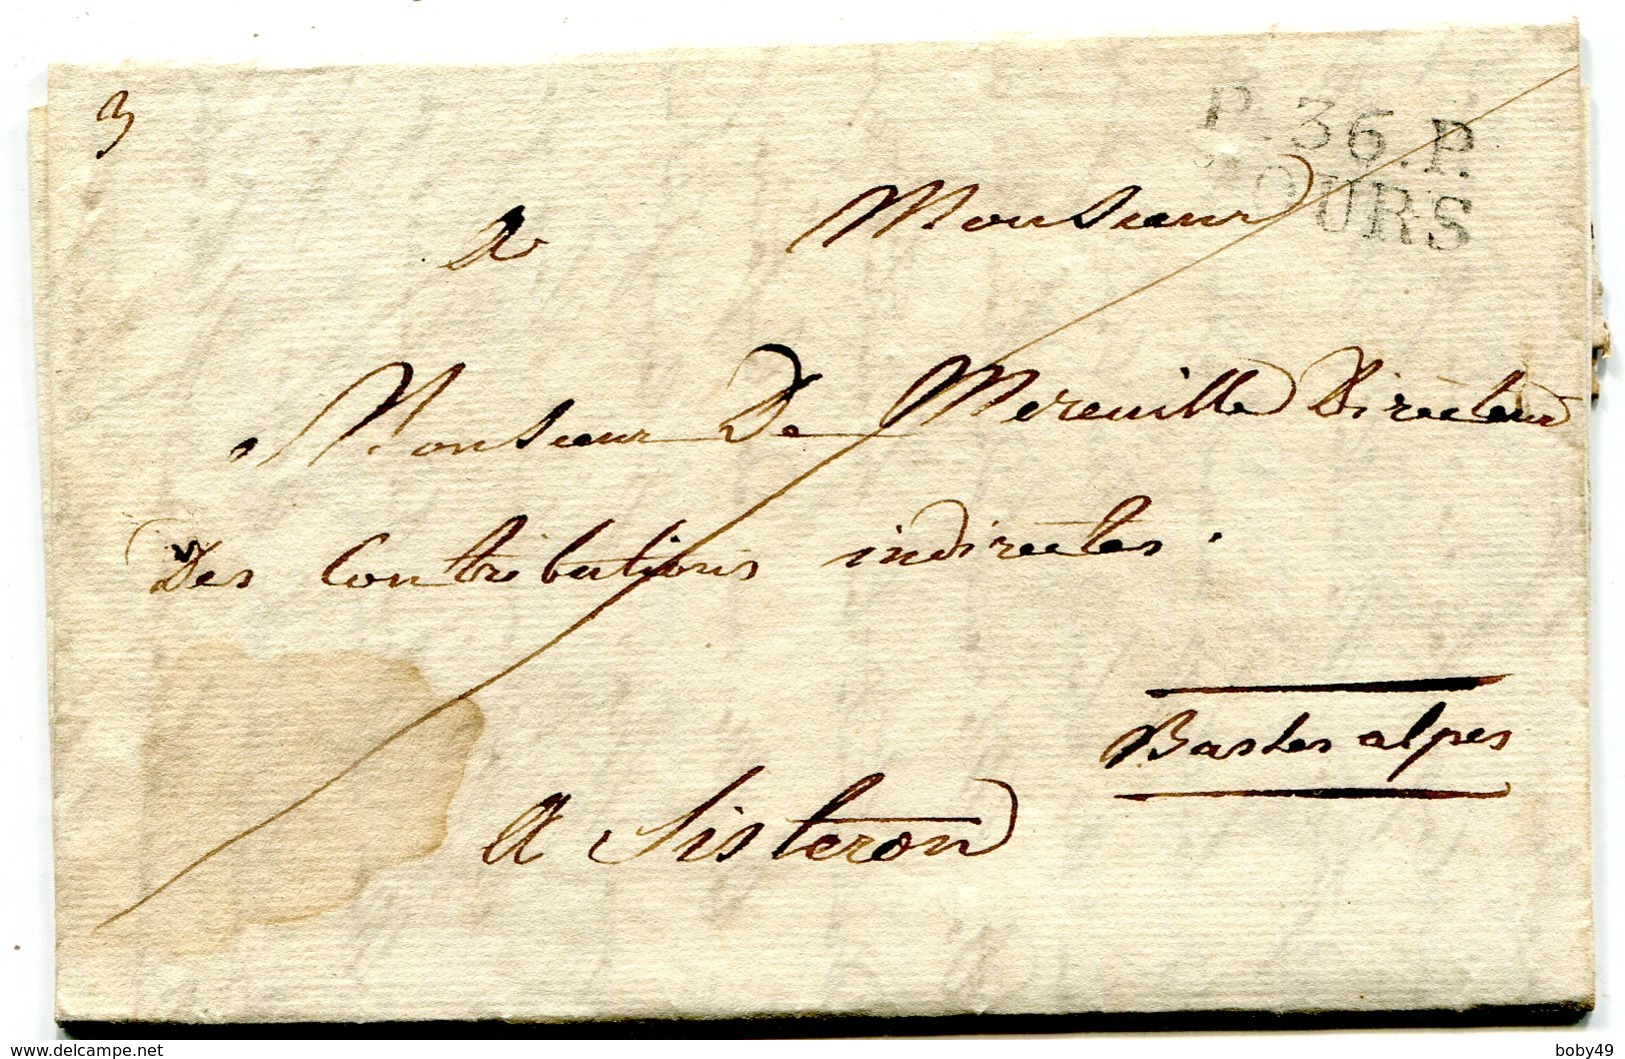 3
P. 36. P.
TOURS
A Monsieur
Monsieur De Mereville Directeur
Des Contributions indirectes.
Basses alpes
A Sisteron
delcampe.net
boby49